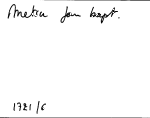 Anetin Jean bapt.
1721/6